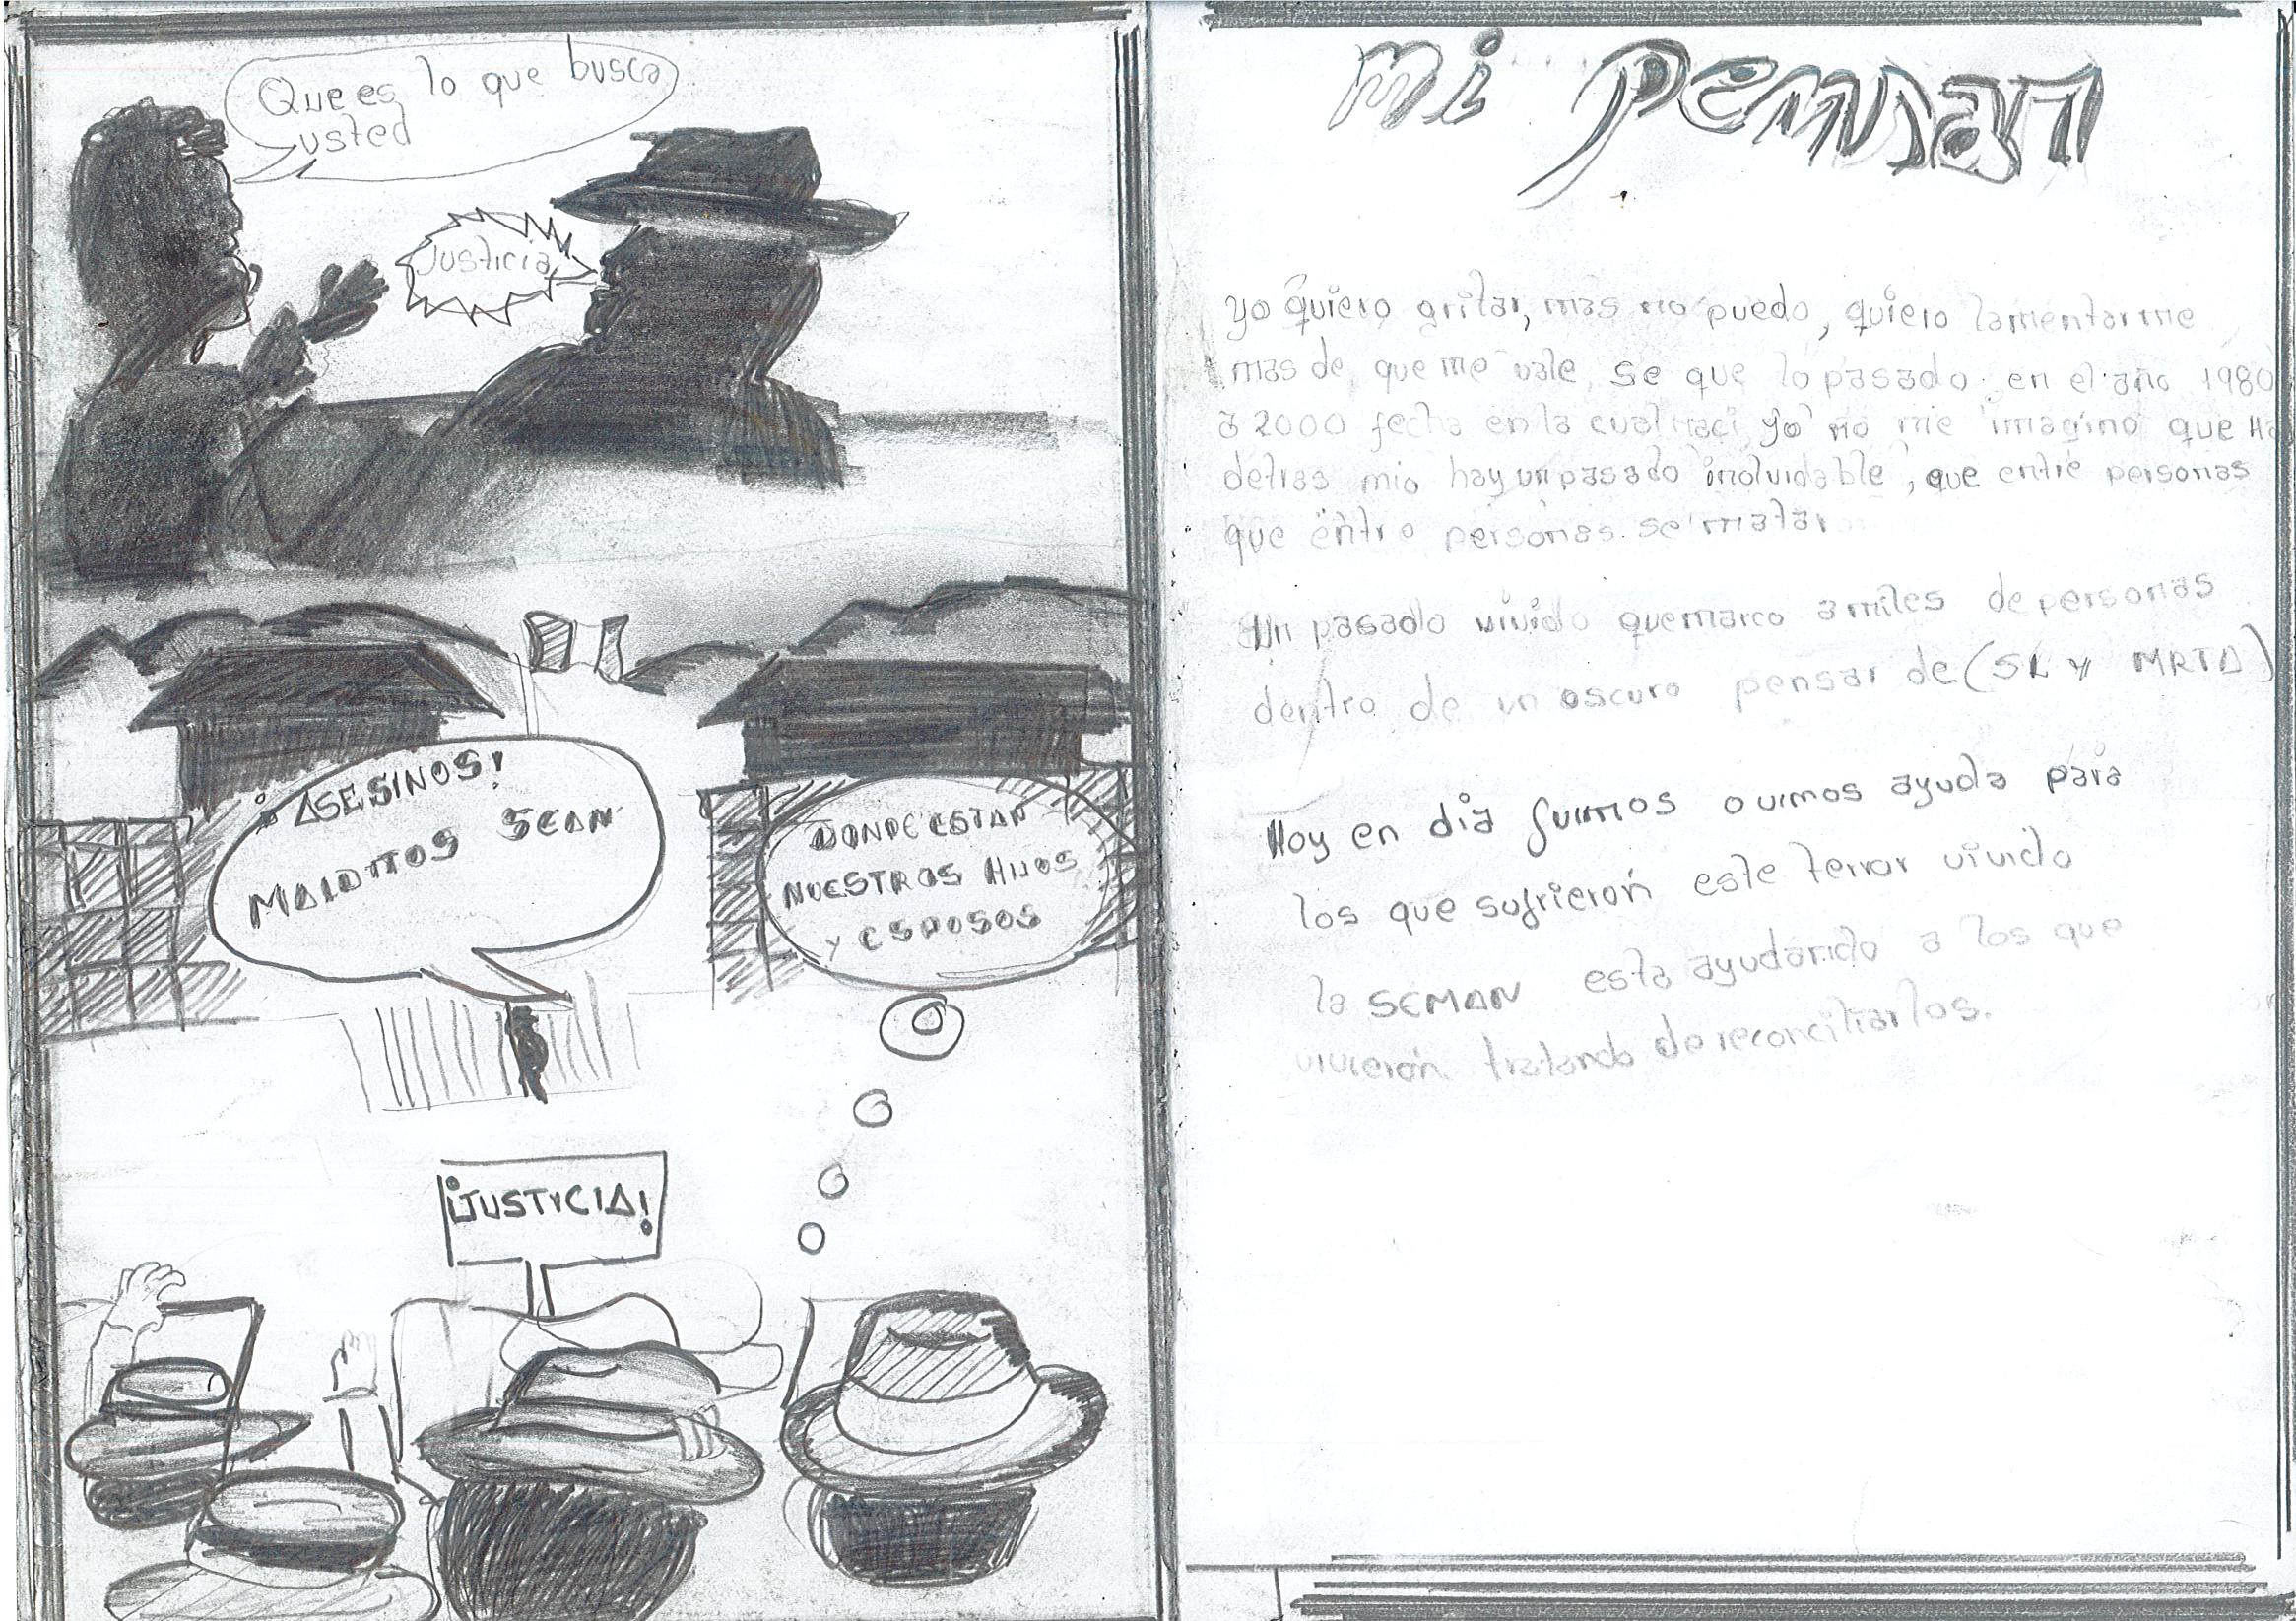 Que es lo que busca
usted
Justicia
¡ASESINOS!
MALDITOS SEAN
DONDE ESTAN
NUESTROS HIJOS
Y ESPOSOS
¡JUSTICIA!
mi pensar
yo quiero gritar, mas no puedo, quiero lamentarme
mas de que me vale, se que lo pasado en el año 1980
a 2000 fecha en la cual naci yo no me imagino que
detras mio hay un pasado inolvidable, que entre personas
que entre personas se matar
Un pasado vivido que marco a miles de personas
dentro de un oscuro pensar de (SL y MRTA)
Hoy en dia fuimos o vimos ayuda para
los que sufrieron este terror vivido
la SEMAN esta ayudando a los que
vivieron tratando de reconciliarlos.